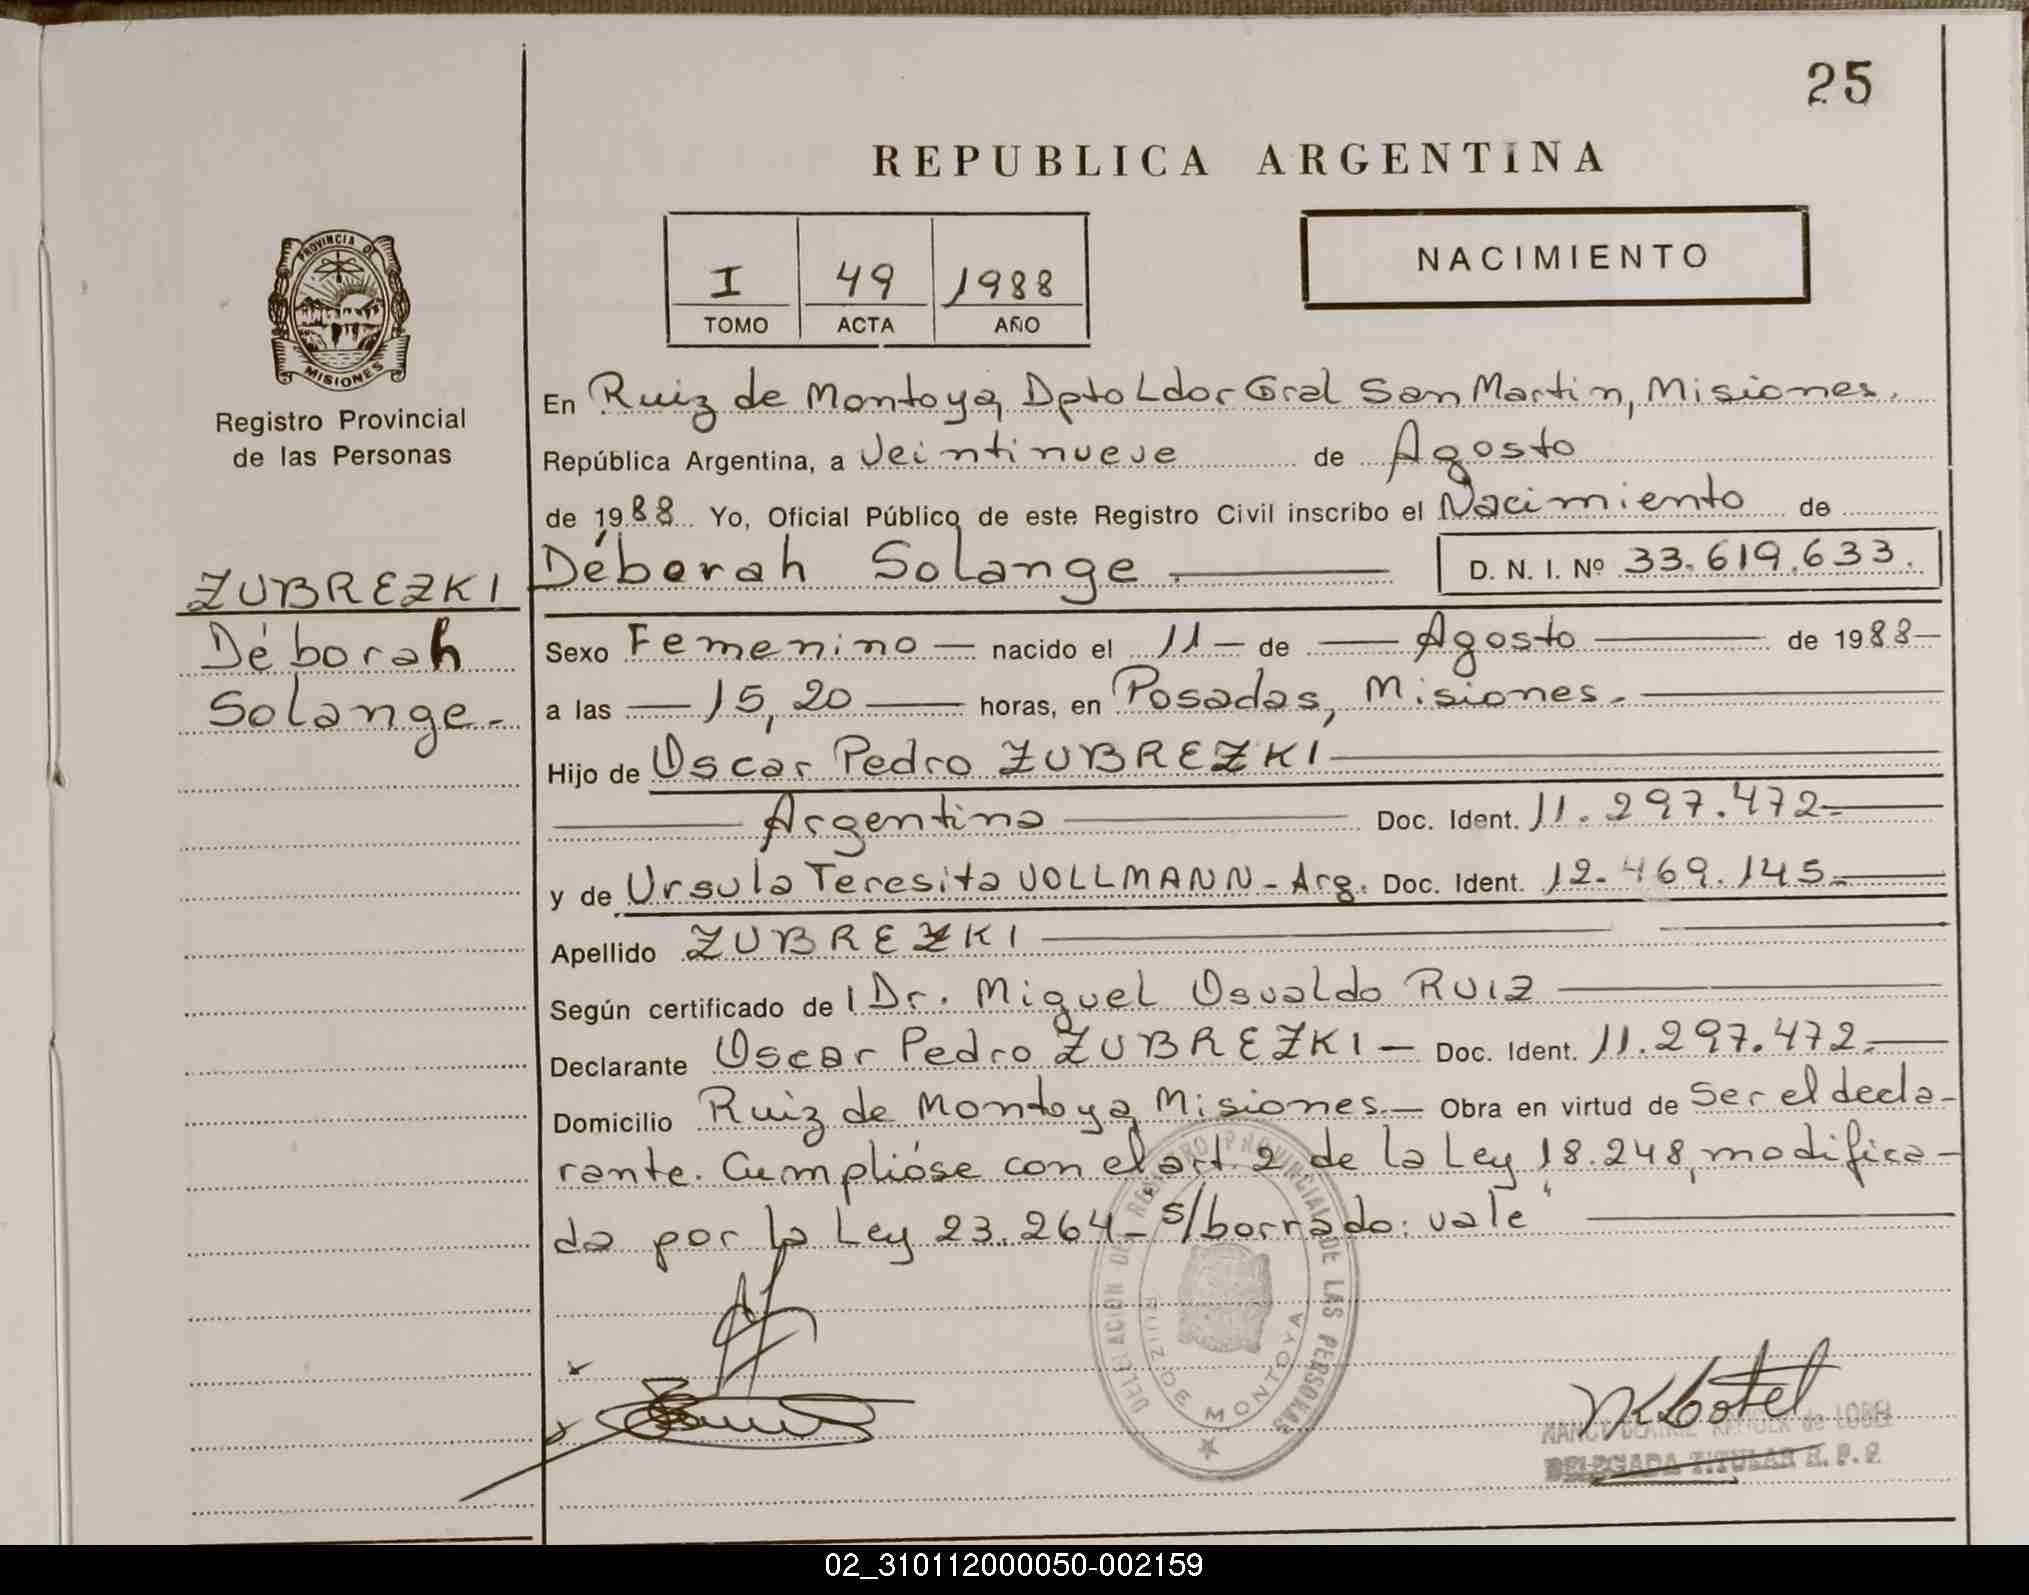 25
REPUBLICA ARGENTINA
I 49 1988
TOMO ACTA AÑO
NACIMIENTO
PROVINCIA DE
MISIONES
Registro Provincial
de las Personas
ZUBREZKI
Déborah
Solange.
En Ruiz de Montoya, Dpto Ldor Gral San Martin, Misiones.
República Argentina, a Veintinueve de Agosto
de 1988 Yo, Oficial Público de este Registro Civil inscribo el Nacimiento de
Déborah Solange. D. N. I. Nº 33.619.633.
Sexo Femenino nacido el 11 de Agosto de 1988
a las 15,20 horas, en Posadas, Misiones.
Hijo de Oscar Pedro ZUBREZKI
Argentino Doc. Ident. 11.297.472
y de Ursula Teresita VOLLMANN - Arg. Doc. Ident. 12.469.145
Apellido ZUBREZKI
Según certificado del Dr. Miguel Osvaldo RUIZ
Declarante Oscar Pedro ZUBREZKI - Doc. Ident. 11.297.472
Domicilio Ruiz de Montoya, Misiones. Obra en virtud de Ser el decla-
rante. Cumplióse con el art. 2 de la Ley 18.248, modifica-
da por la Ley 23.264 - "s/borrado: vale"
DELEGACION DE REGISTRO PROVINCIAL DE LAS PERSONAS
RUIZ DE MONTOYA
DELEGADA TITULAR R. P. P.
02_310112000050-002159